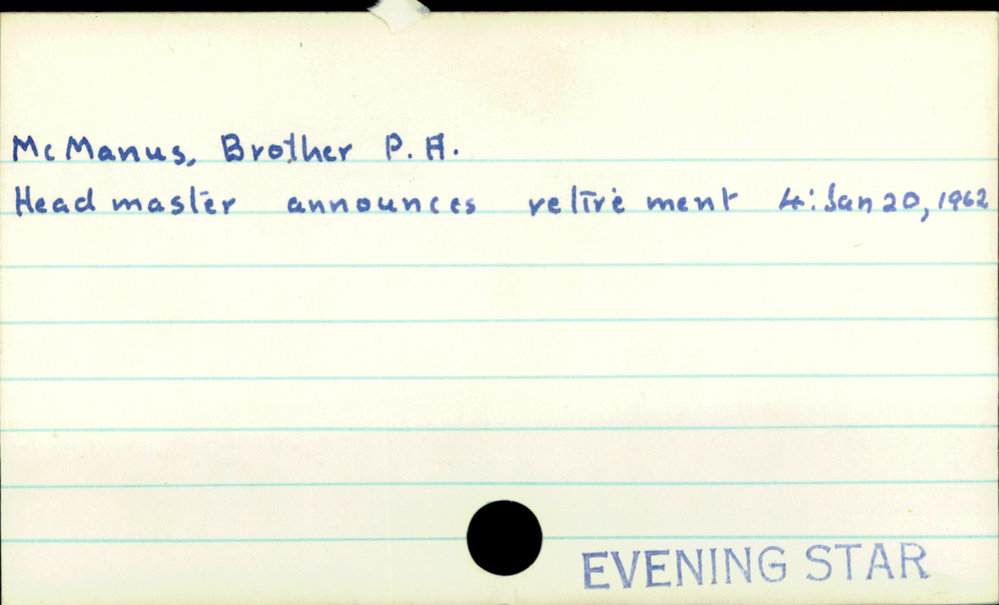 McManus, Brother P. A.
Head master announces retire ment 4: Jan 20, 1962
EVENING STAR